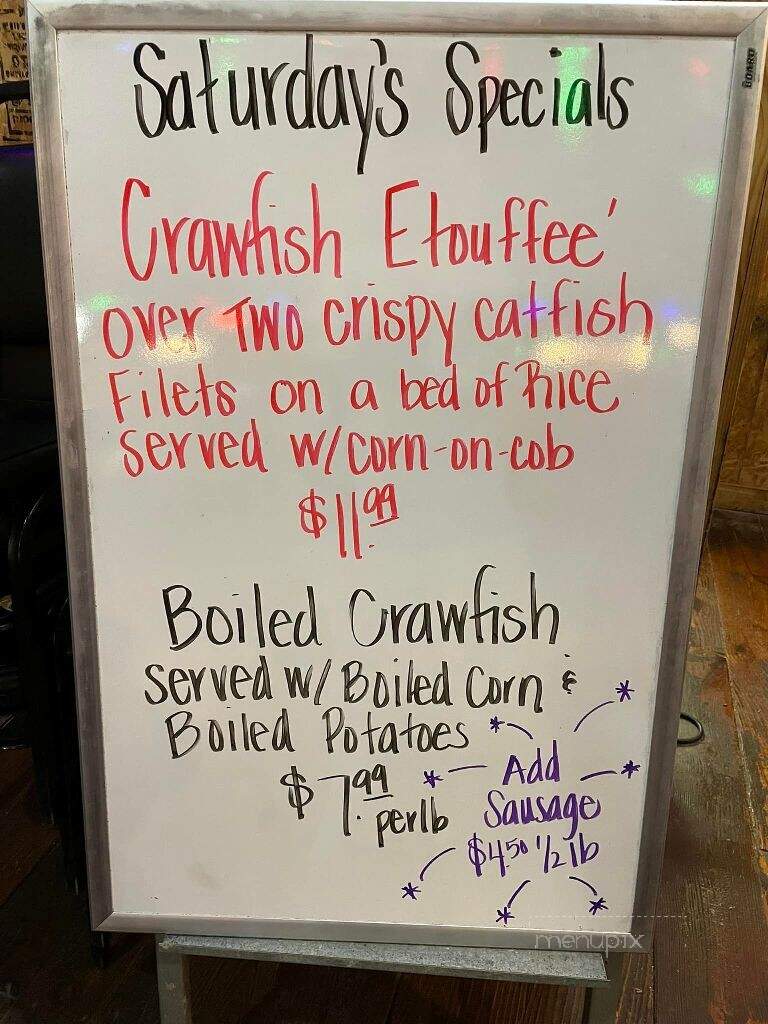 BOARD
Saturday's Specials
Crawfish Etouffee'
over Two crispy catfish
Filets on a bed of Rice
served w/corn-on-cob
$11.99
Boiled Crawfish
served w/ Boiled Corn &
Boiled Potatoes
$7.99 per lb
Add
Sausage
$4.50 1/2 lb
menupix